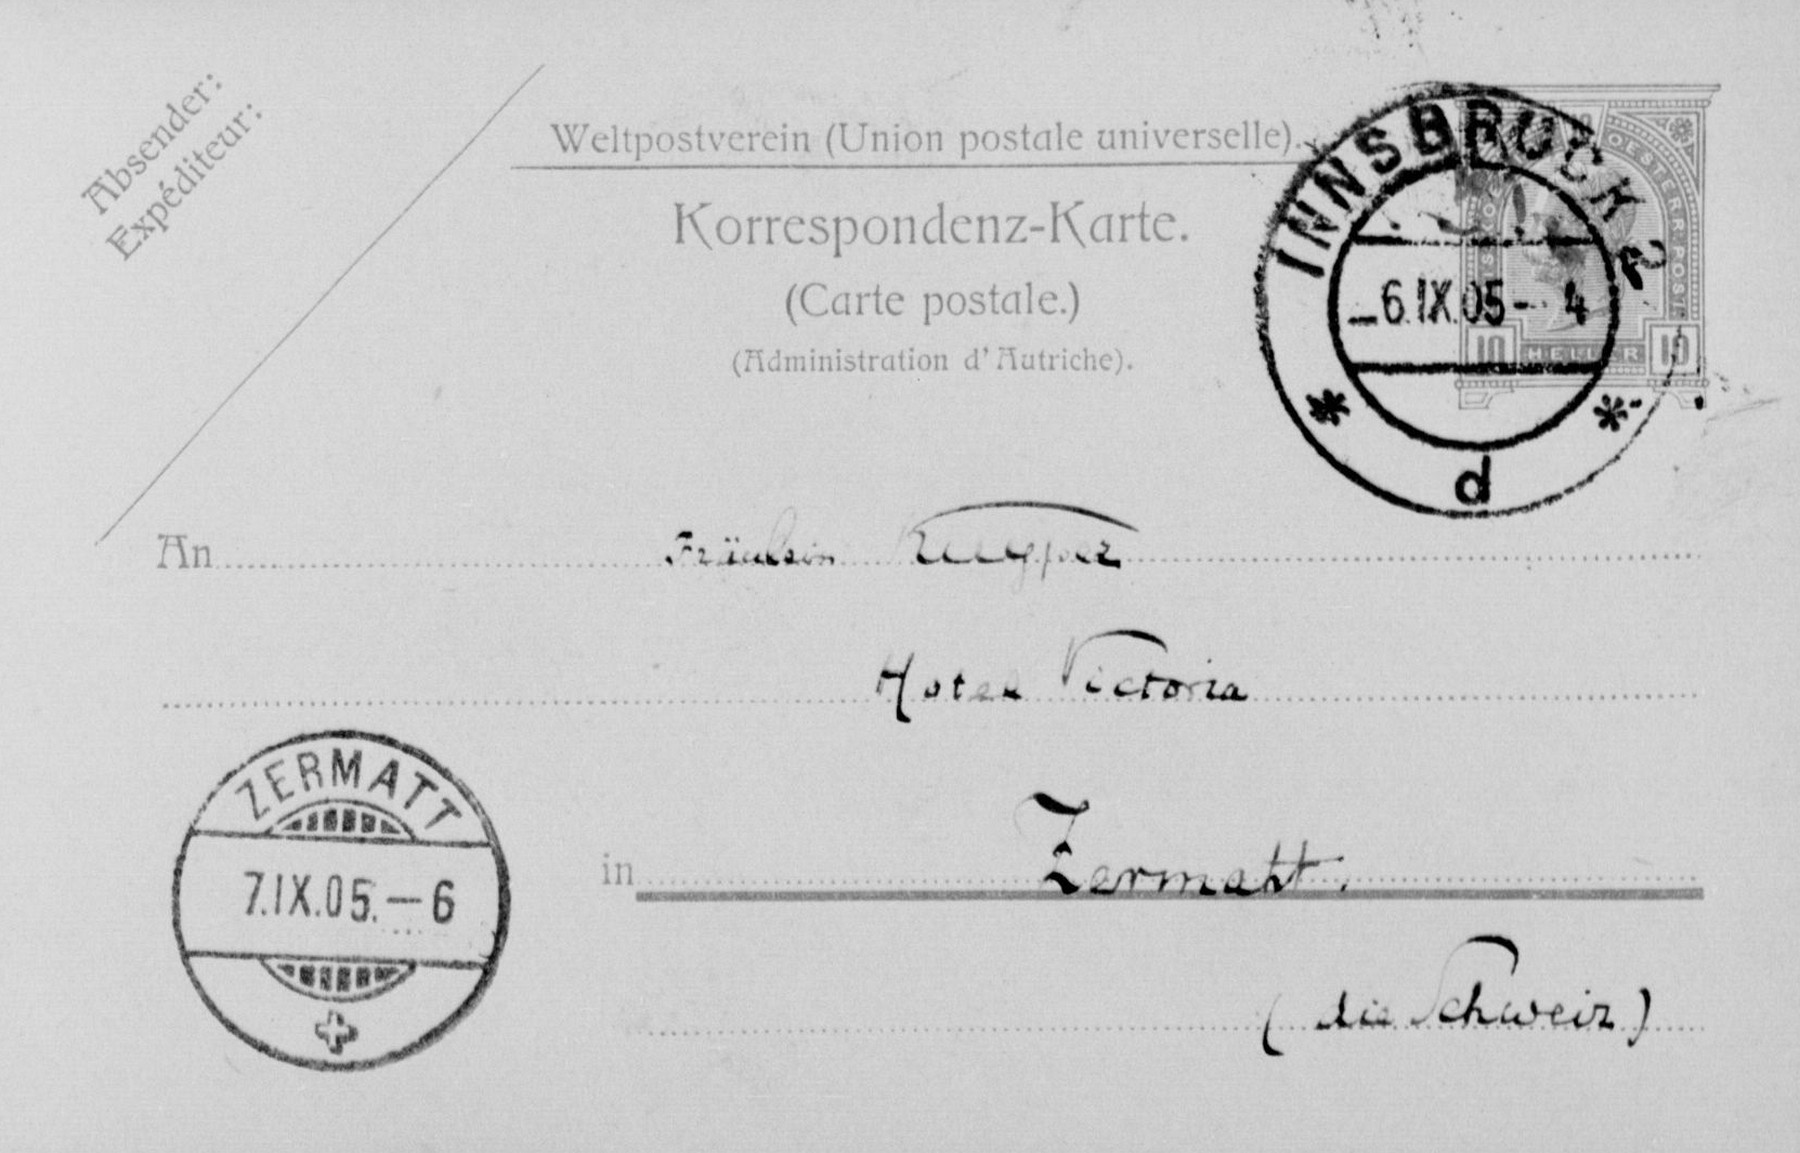 Absender:
Expéditeur:
Weltpostverein (Union postale universelle).
Korrespondenz-Karte.
(Carte postale.)
(Administration d'Autriche).
INNSBRUCK 2
6.IX.05- 4
d
OESTERR. POST
10 HELLER 10
An Fräulein Kuyper
Hotel Victoria
ZERMATT
7.IX.05.-6
in Zermatt.
(die Schweiz)